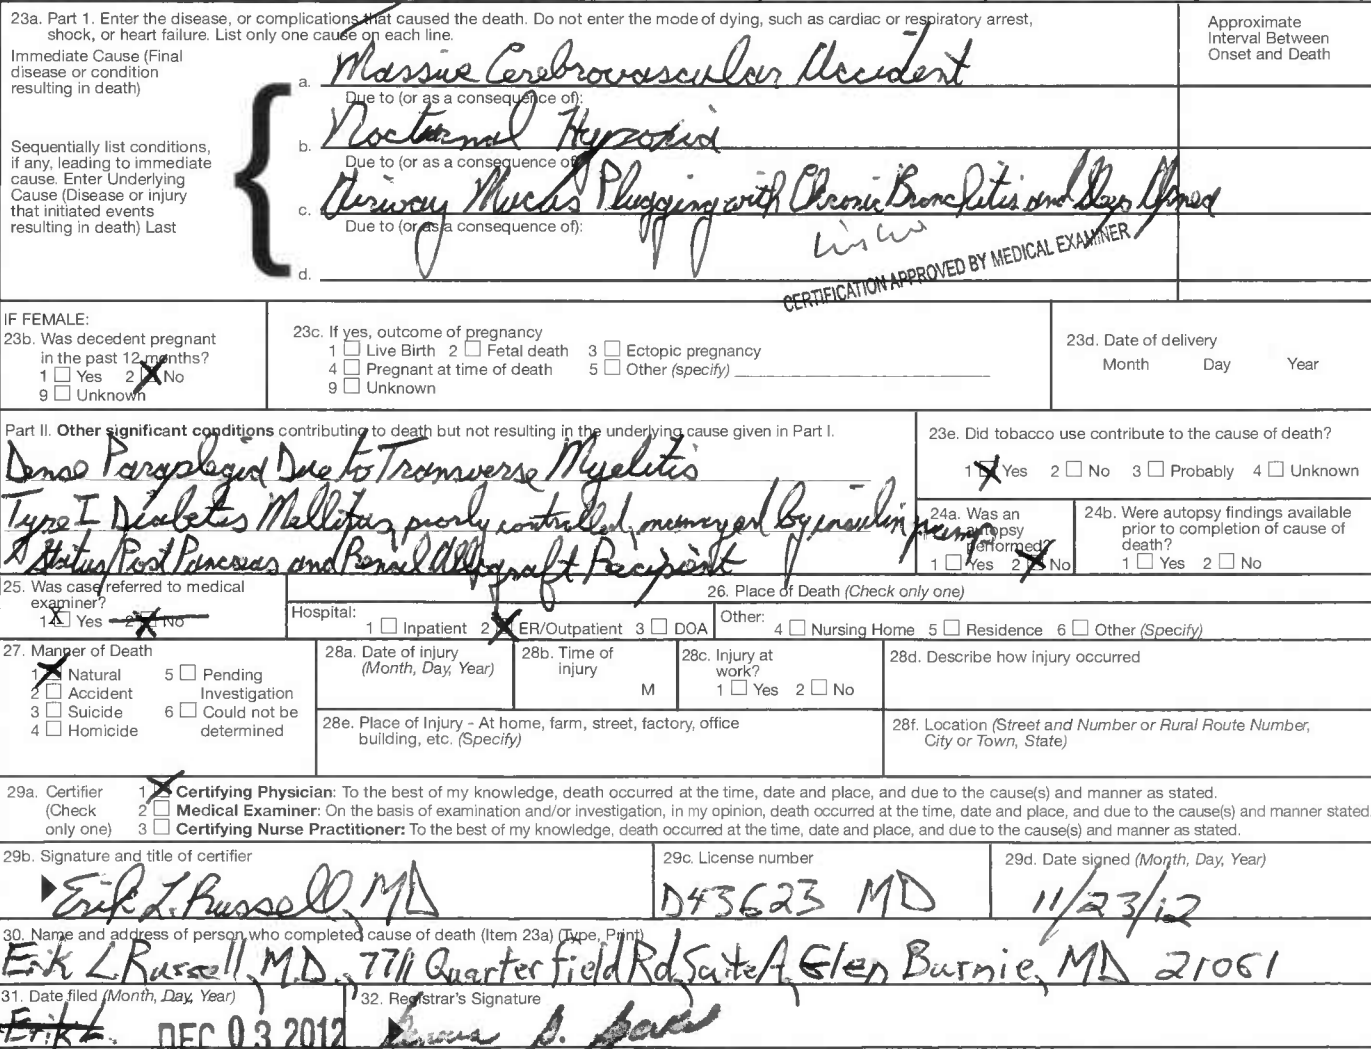 23a. Part 1. Enter the disease, or complications that caused the death. Do not enter the mode of dying, such as cardiac or respiratory arrest,
shock, or heart failure. List only one cause on each line.
Approximate
Interval Between
Onset and Death
Immediate Cause (Final
disease or condition
resulting in death)
a. Massive Cerebrovascular Accident
Due to (or as a consequence of):
Sequentially list conditions,
if any, leading to immediate
cause. Enter Underlying
Cause (Disease or injury
that initiated events
resulting in death) Last
b. Nocturnal Hypoxia
Due to (or as a consequence of
c. Airway Mucus Plugging with Chronic Bronchitis and Sleep Apnea
Due to (or as a consequence of):
d.
CERTIFICATION APPROVED BY MEDICAL EXAMINER
IF FEMALE:
23b. Was decedent pregnant
in the past 12 months?
1 Yes 2 X No
9 Unknown
23c. If yes, outcome of pregnancy
1 Live Birth 2 Fetal death 3 Ectopic pregnancy
4 Pregnant at time of death 5 Other (specify)
9 Unknown
23d. Date of delivery
Month Day Year
Part II. Other significant conditions contributing to death but not resulting in the underlying cause given in Part I.
Dense Paraplegia Due to Transverse Myelitis
Type I Diabetes Mellitus, poorly controlled, managed by insulin pump
Status/Post Pancreas and Renal Allograft Recipient
23e. Did tobacco use contribute to the cause of death?
1 X Yes 2 No 3 Probably 4 Unknown
24a. Was an
autopsy
performed?
1 Yes 2 X No
24b. Were autopsy findings available
prior to completion of cause of
death?
1 Yes 2 No
25. Was case referred to medical
examiner?
1 X Yes 2 X No
26. Place of Death (Check only one)
Hospital:
1 Inpatient 2 X ER/Outpatient 3 DOA
Other:
4 Nursing Home 5 Residence 6 Other (Specify)
27. Manner of Death
1 X Natural 5 Pending
2 Accident Investigation
3 Suicide 6 Could not be
4 Homicide determined
28a. Date of injury
(Month, Day, Year)
28b. Time of
injury
M
28c. Injury at
work?
1 Yes 2 No
28d. Describe how injury occurred
28e. Place of Injury - At home, farm, street, factory, office
building, etc. (Specify)
28f. Location (Street and Number or Rural Route Number,
City or Town, State)
29a. Certifier
(Check
only one)
1 X Certifying Physician: To the best of my knowledge, death occurred at the time, date and place, and due to the cause(s) and manner as stated.
2 Medical Examiner: On the basis of examination and/or investigation, in my opinion, death occurred at the time, date and place, and due to the cause(s) and manner stated
3 Certifying Nurse Practitioner: To the best of my knowledge, death occurred at the time, date and place, and due to the cause(s) and manner as stated.
29b. Signature and title of certifier
Erik L. Russell, MD
29c. License number
D43623 MD
29d. Date signed (Month, Day, Year)
11/23/12
30. Name and address of person who completed cause of death (Item 23a) (Type, Print)
Erik L Russell, M.D., 7711 Quarterfield Rd, Suite A, Glen Burnie, MD 21061
31. Date filed (Month, Day, Year)
Erik L.
DEC 03 2012
32. Registrar's Signature